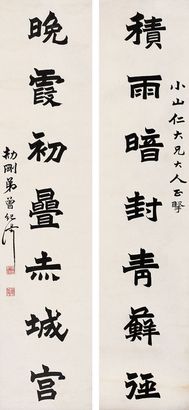 積雨暗封青蘚徑
小山仁大兄大人正
晚霞初疊赤城宫
劼剛弟曾紀澤